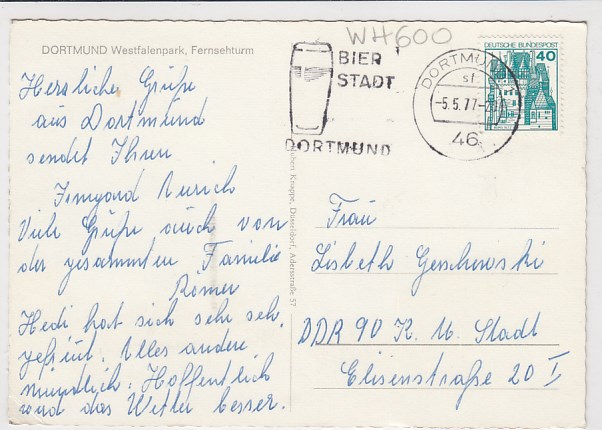 WH600
DORTMUND Westfalenpark, Fernsehturm
BIER
STADT
DORTMUND
DEUTSCHE BUNDESPOST
40
DORTMU
-5.5.77-
46
Herzliche Grüße
aus Dortmund
sendet Ihnen
Irmgard
Viele Grüße auch von
der gesammten Familie
Römer
Hedi hat sich sehr sehr
gefreut. Alles andere
mündlich. Hoffentlich
wird das Wetter besser.
Knippe, Düsseldorf, Adersstraße 57
Frau
Lisbeth Geschewski
DDR 90 K. M. Stadt
Elisenstraße 20 I